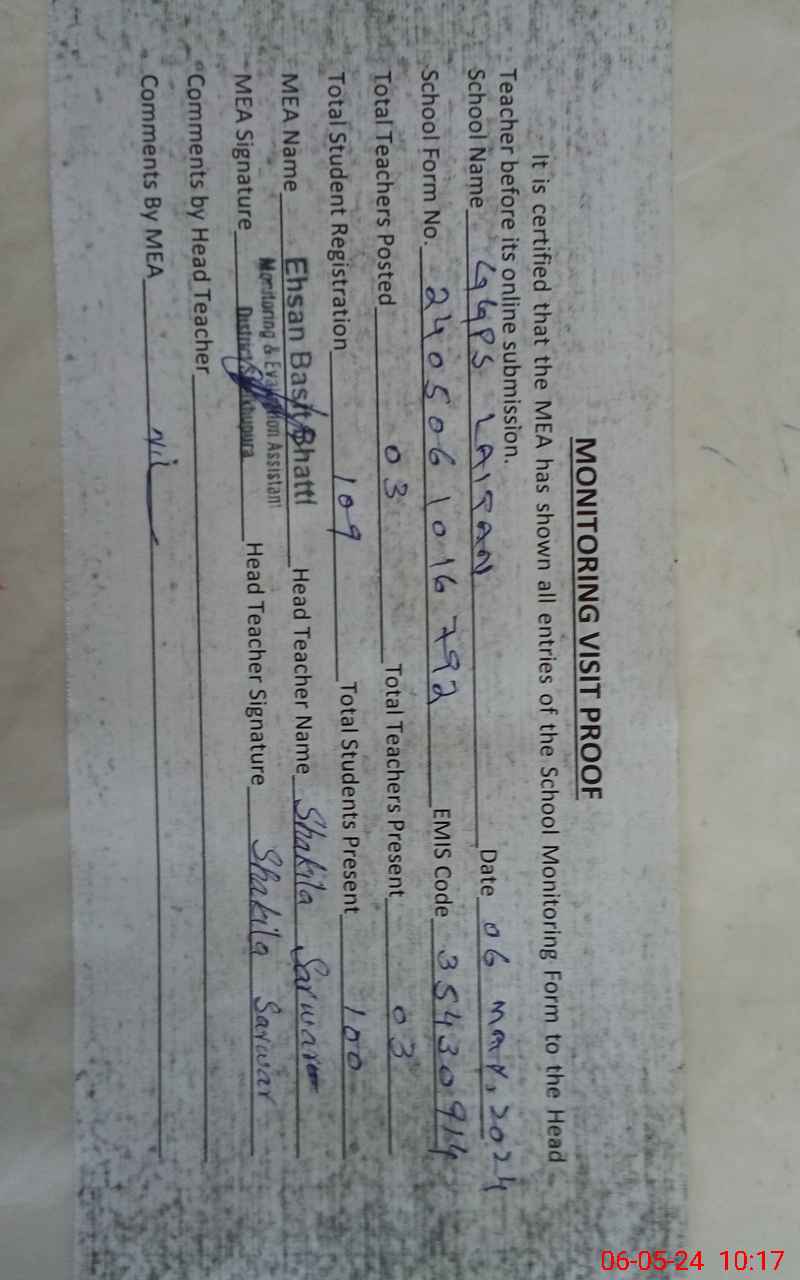 MONITORING VISIT PROOF
It is certified that the MEA has shown all entries of the School Monitoring Form to the Head
Teacher before its online submission.
School Name GGPS LAIQAN Date 06 May, 2024
School Form No. 240506 1016 792 EMIS Code 35430914
Total Teachers Posted 03 Total Teachers Present 03
Total Student Registration 109 Total Students Present 100
MEA Name Ehsan Basit Bhatti Head Teacher Name Shakila Sarwar
Monitoring & Evaluation Assistant
MEA Signature District Head Teacher Signature Shakila Sarwar
Comments by Head Teacher
Comments By MEA Nil
06-05-24 10:17